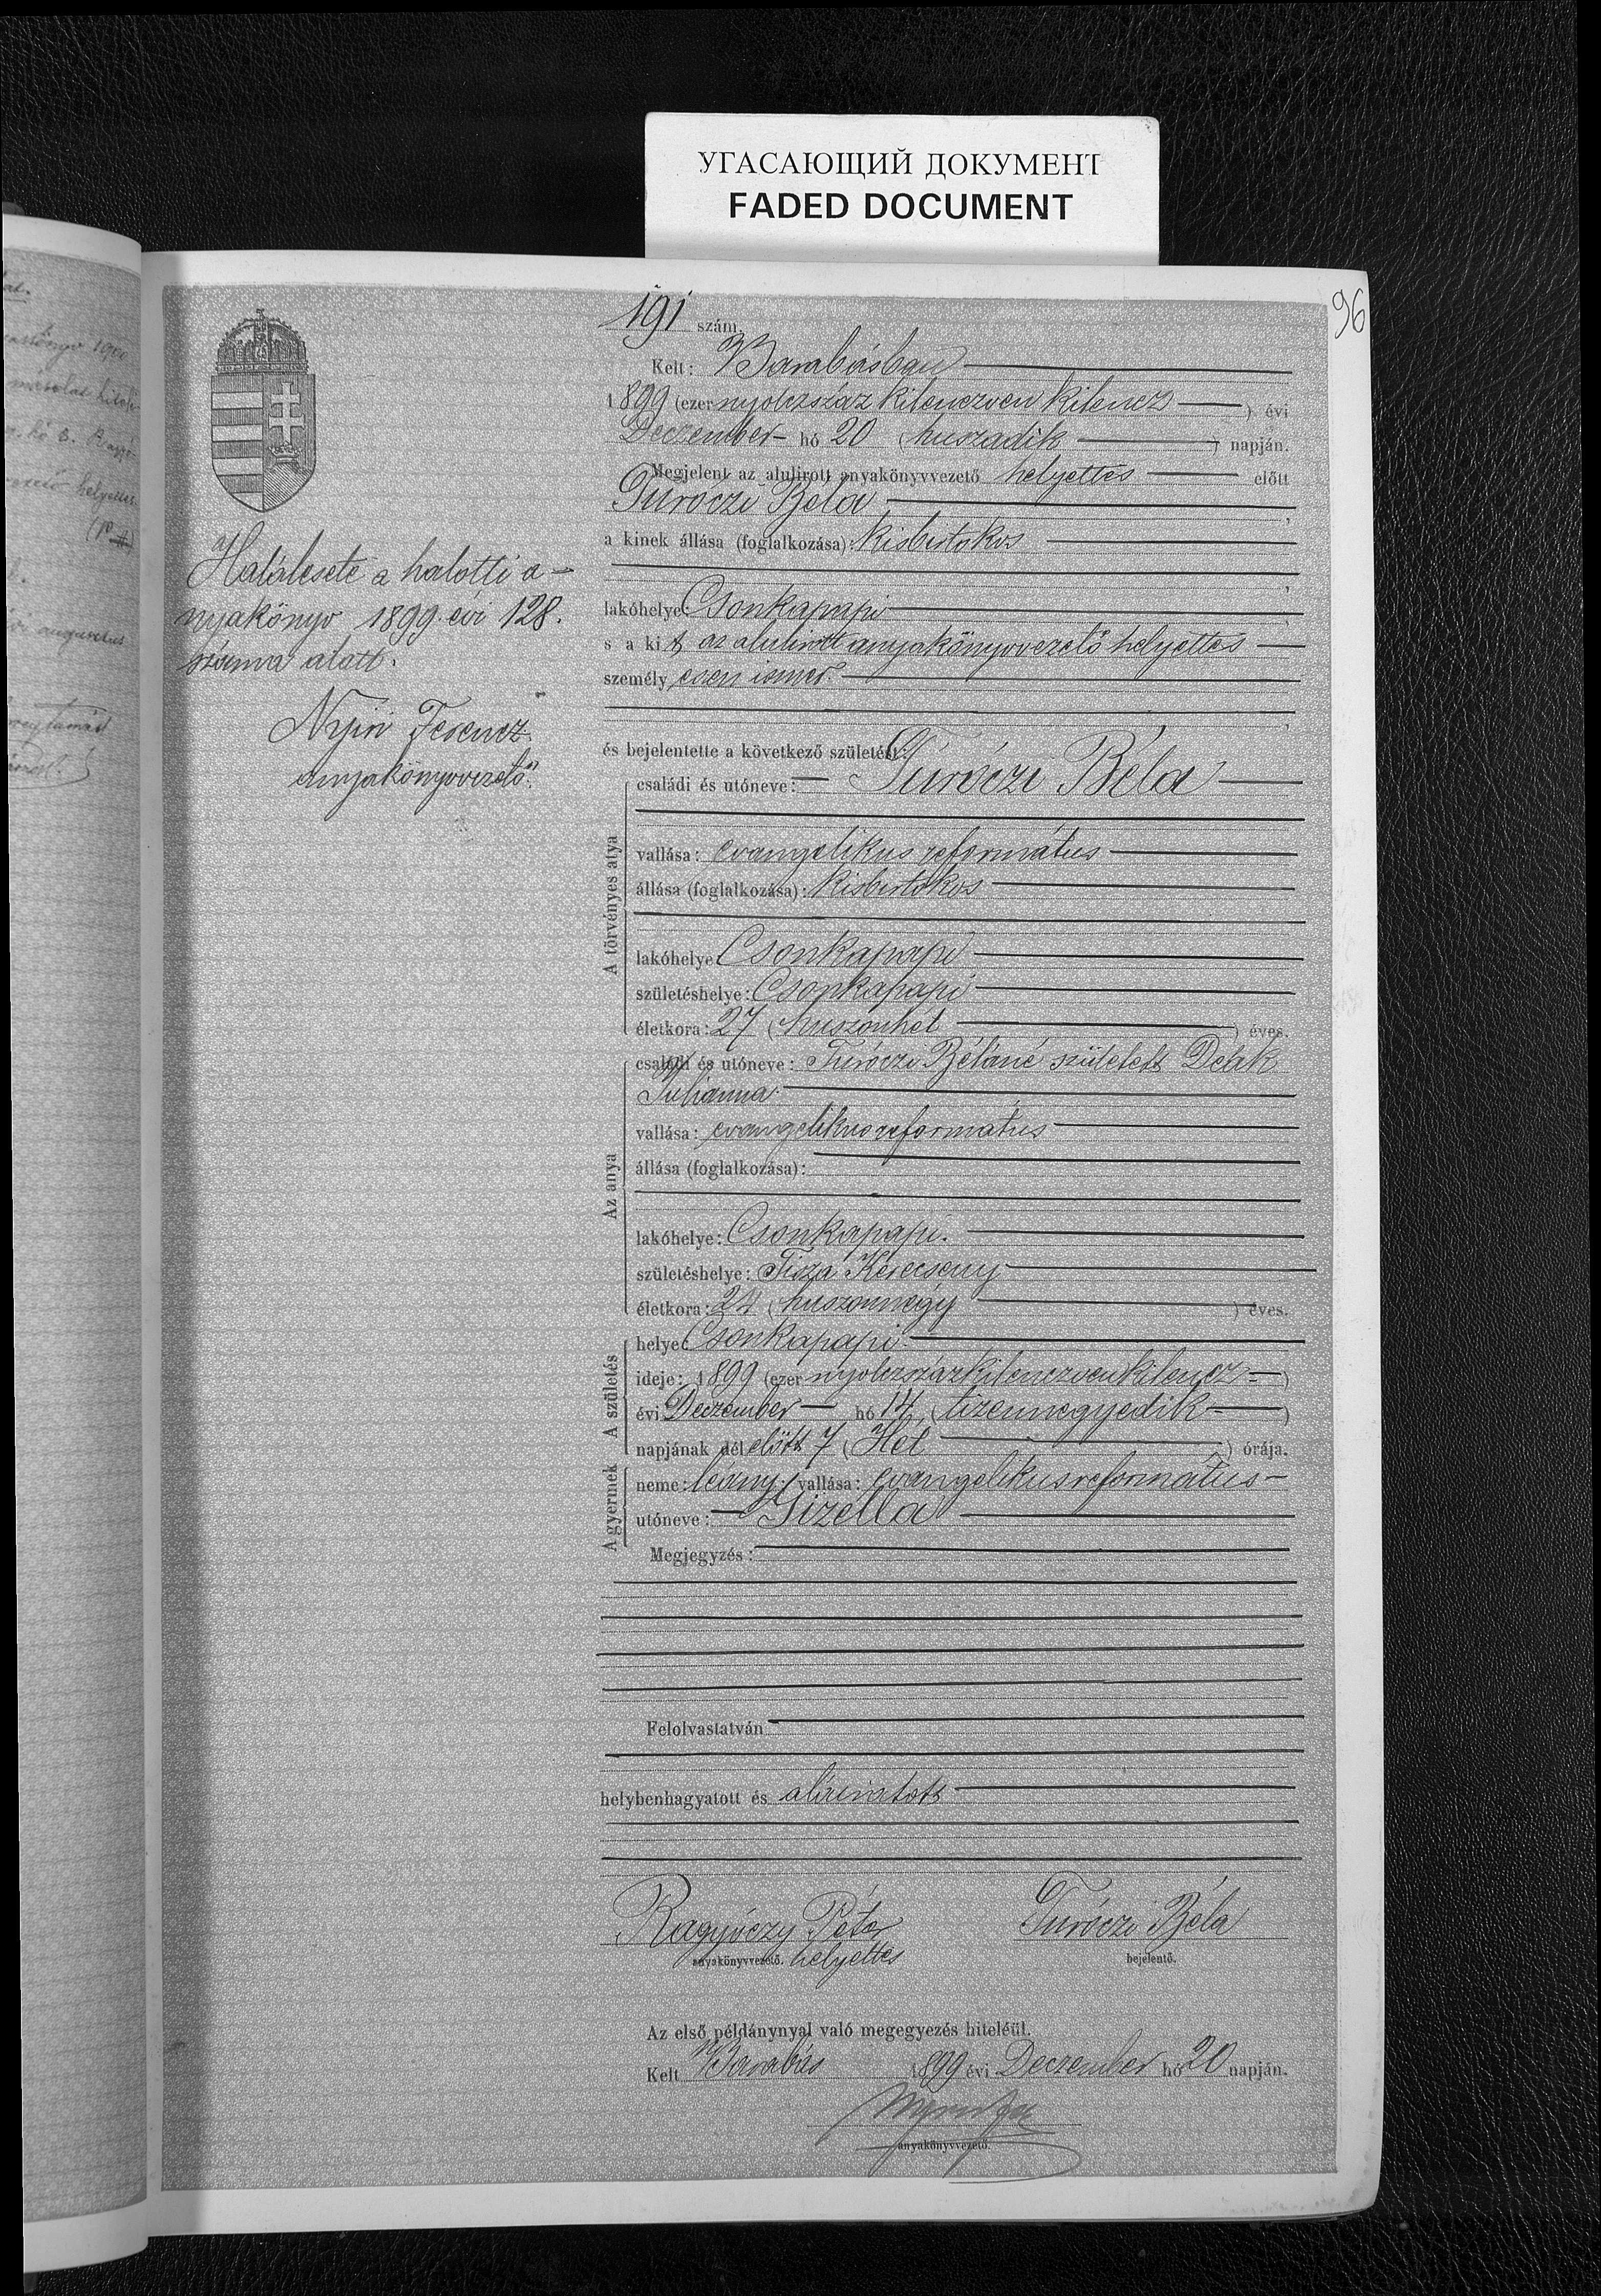 УГАСАЮЩИЙ ДОКУМЕНТ
FADED DOCUMENT
96
191 szám.
Kelt: Barabásban
1899 (ezer nyolczszáz kilenczven kilencz) évi
Deczember hó 20 (huszadik) napján.
Megjelent az alulirott anyakönyvvezető helyettes előtt
Turóczi Béla,
a kinek állása (foglalkozása): kisbirtokos
,
lakóhelye: Csonkapapi
s a kit az alulirott anyakönyvvezető helyettes
személyesen ismer.
,
és bejelentette a következő születést:
A törvényes atya
családi és utóneve: Turóczi Béla
vallása: evangelikus református
állása (foglalkozása): kisbirtokos
lakóhelye: Csonkapapi
születéshelye: Csonkapapi
életkora: 27 (huszonhét) éves.
Az anya
családi és utóneve: Turóczi Béláné született Deák
Julianna
vallása: evangelikus református
állása (foglalkozása):
lakóhelye: Csonkapapi.
születéshelye: Tisza Kerecseny
életkora: 24 (huszonnegy) éves.
A születés
helye: Csonkapapi
ideje: 1899 (ezer nyolczszázkilenczvenkilencz)
évi Deczember hó 14 (tizennegyedik)
napjának délelőtt 7 (Hét) órája.
A gyermek
neme: leány; vallása: evangelikus református
utóneve: Gizella
Megjegyzés:
Felolvastatván
helybenhagyatott és aláiratott
Ragyóczy Péter
anyakönyvvezető. helyettes
Turóczi Béla
bejelentő.
Az első példánynyal való megegyezés hiteléül.
Kelt Barabás 1899 évi Deczember hó 20 napján.
anyakönyvvezető.
Halálesete a halotti a-
nyakönyv 1899. évi 128.
száma alatt.
Nyiri Ferencz
anyakönyvvezető."